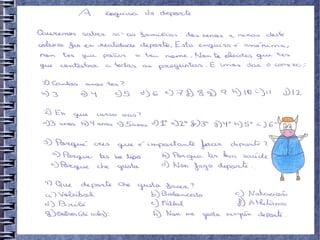 A enquisa do deporte
Queremos saber se os familias dos nenos e nenas deste
colexio fan en realidade deporte. Esta enquisa é anónima,
non tes que poñer o teu nome. Non te olvides que tes
que contestar a todas as preguntas. E imos dar o comezo:
1) Cantos anos tes?
a) 3 b) 4 c) 5 d) 6 e) 7 f) 8 g) 9 h) 10 i) 11 j) 12
2) En que curso vas?
a) 3 anos b) 4 anos c) 5 anos d) 1º e) 2º f) 3º g) 4º h) 5º i) 6º
3) Porque cres que é importante facer deporte?
a) Porque tes bo tipo b) Porque tes boa saúde
c) Porque che gusta d) Non fago deporte
4) Que deporte che gusta facer?
a) Voleibol b) Baloncesto c) Natación
d) Baile e) Fútbol f) Atletismo
g) Outros (di cales): h) Non me gusta ningún deporte